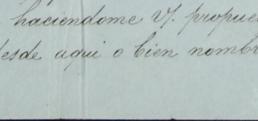 haciendome V. propue
desde aqui o bien nomb